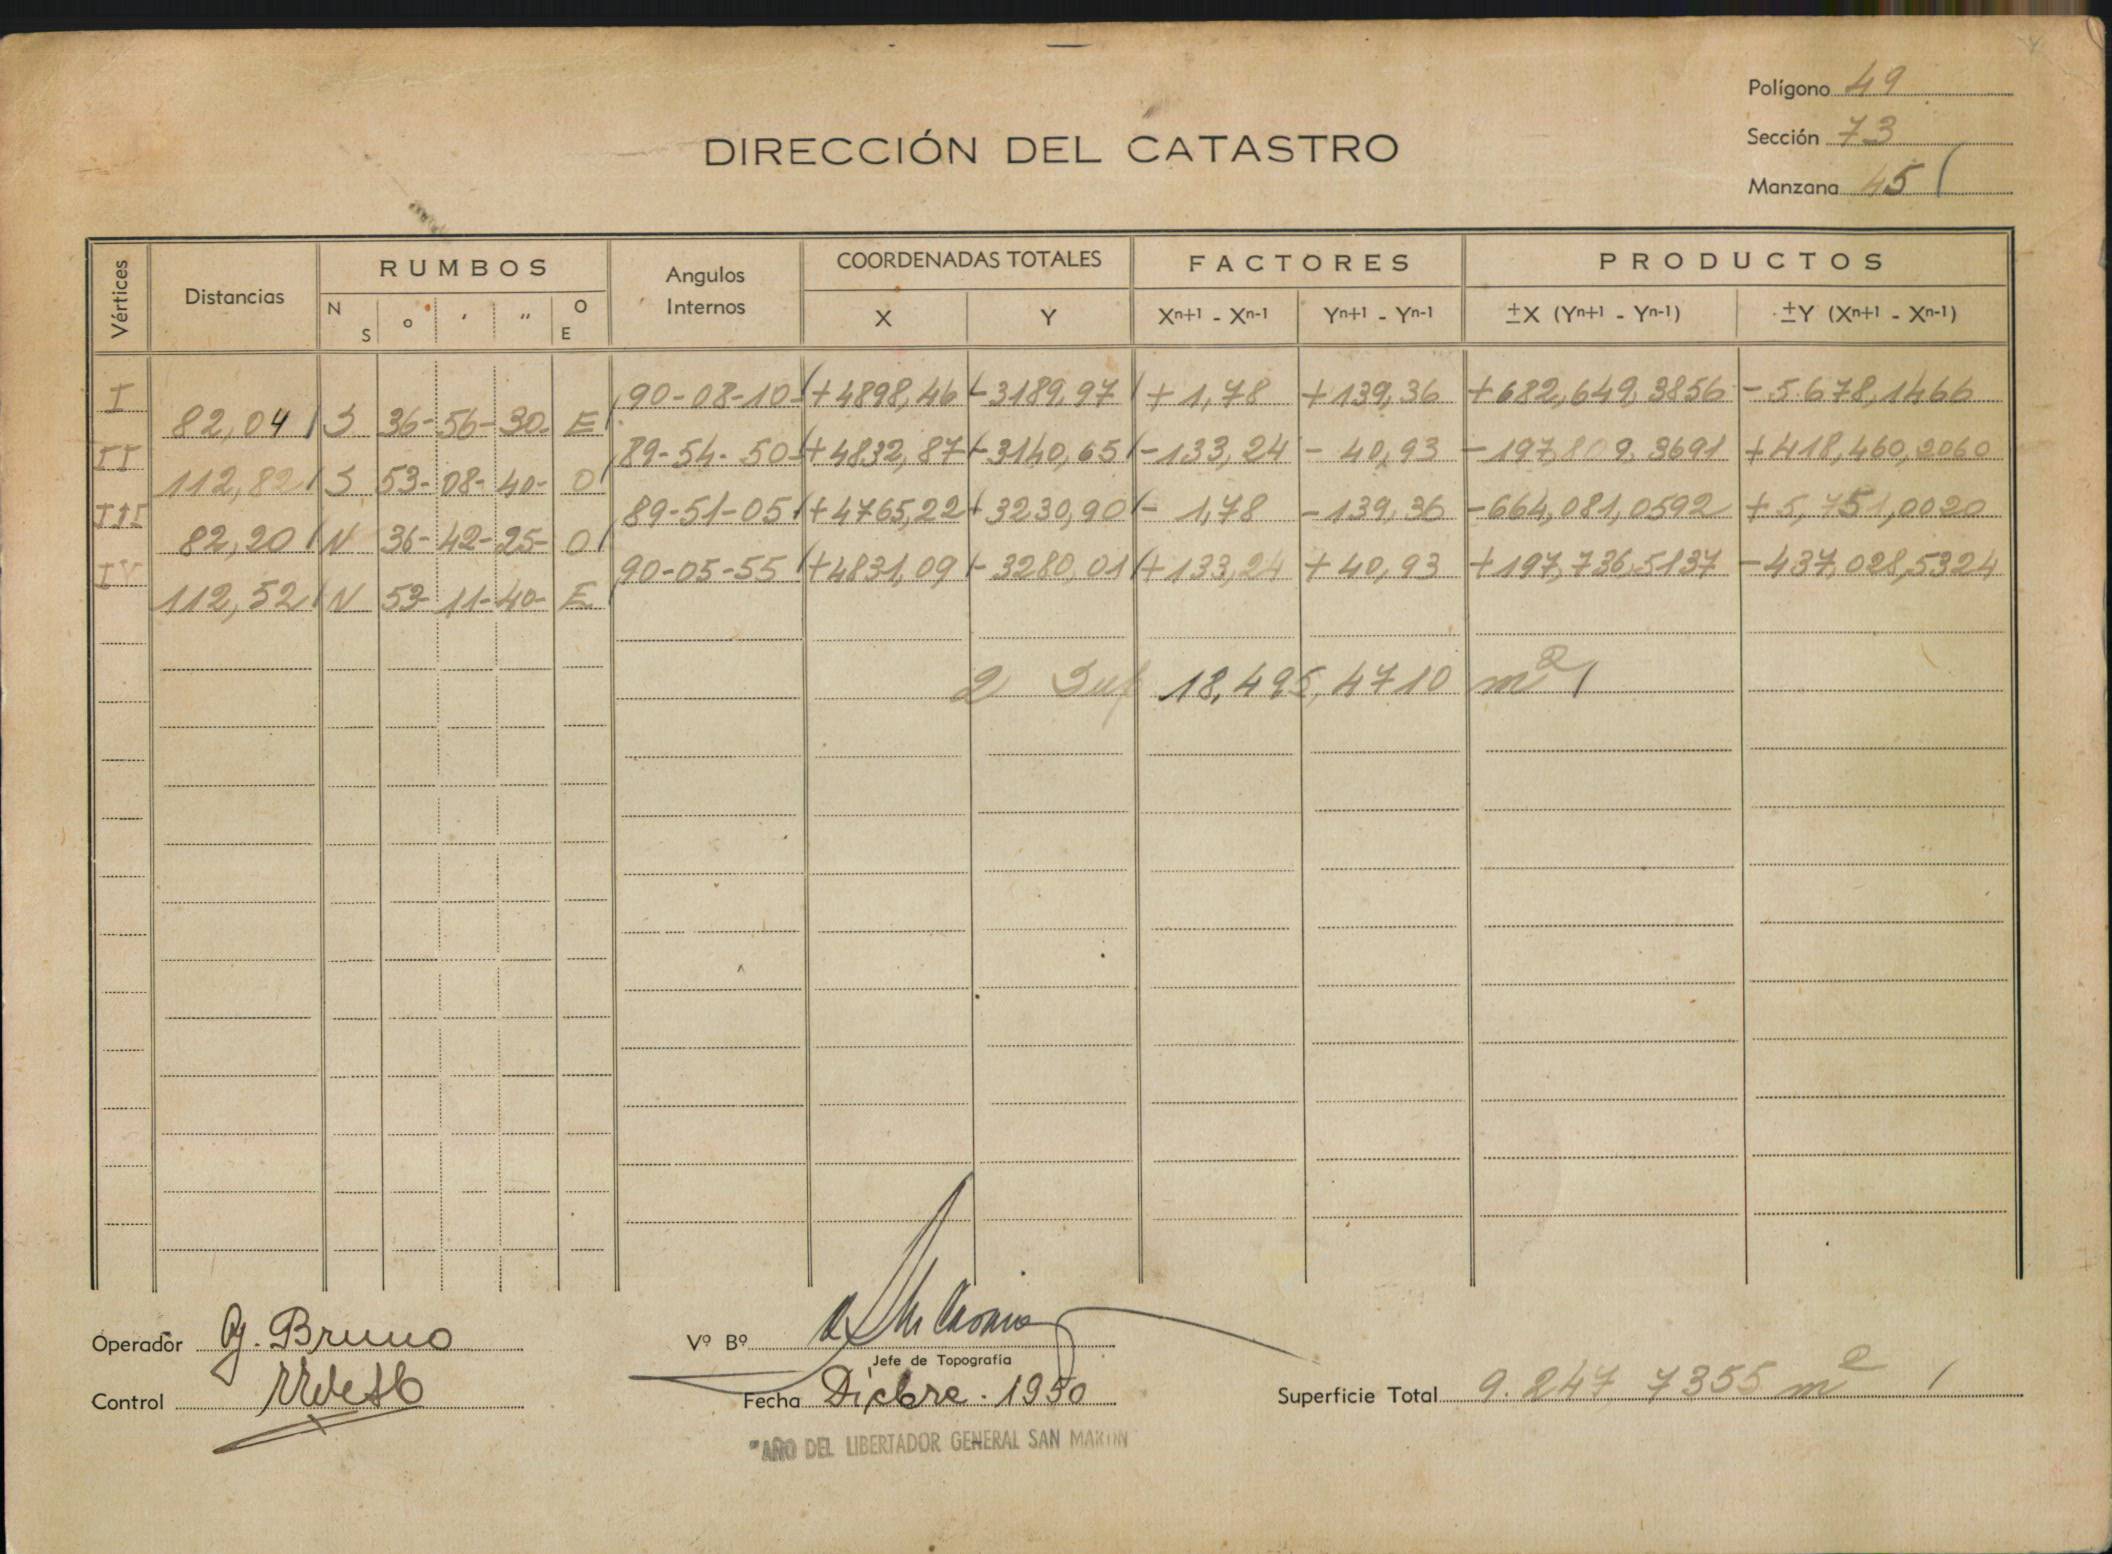 Polígono 49
Sección 73
Manzana 45
DIRECCIÓN DEL CATASTRO
Vértices Distancias RUMBOS Angulos Internos COORDENADAS TOTALES FACTORES PRODUCTOS
N S o ' " O E X Y Xn+1 - Xn-1 Yn+1 - Yn-1 ±X (Yn+1 - Yn-1) ±Y (Xn+1 - Xn-1)
I 90-08-10 +4898,46 -3189,97 +1,78 +139,36 +682,649,3856 -5.678,1466
82,04 S 36-56-30- E
II 89-54-50 +4832,87 -3140,65 -133,24 -40,93 -197,809,3691 +418,460,2060
112,82 S 53-08-40- O
III 89-51-05 +4765,22 +3230,90 -1,78 -139,36 -664,081,0592 +5,751,0020
82,20 N 36-42-25- O
IV 90-05-55 +4831,09 -3280,01 +133,24 +40,93 +197,736,5137 -437,028,5324
112,52 N 53-11-40- E
2 Sup 18,495,4710 m2
Operador G. Bruno
Vº Bº
Jefe de Topografía
Control
Fecha Dicbre. 1950
Superficie Total 9.247 7355 m2
"AÑO DEL LIBERTADOR GENERAL SAN MARTIN